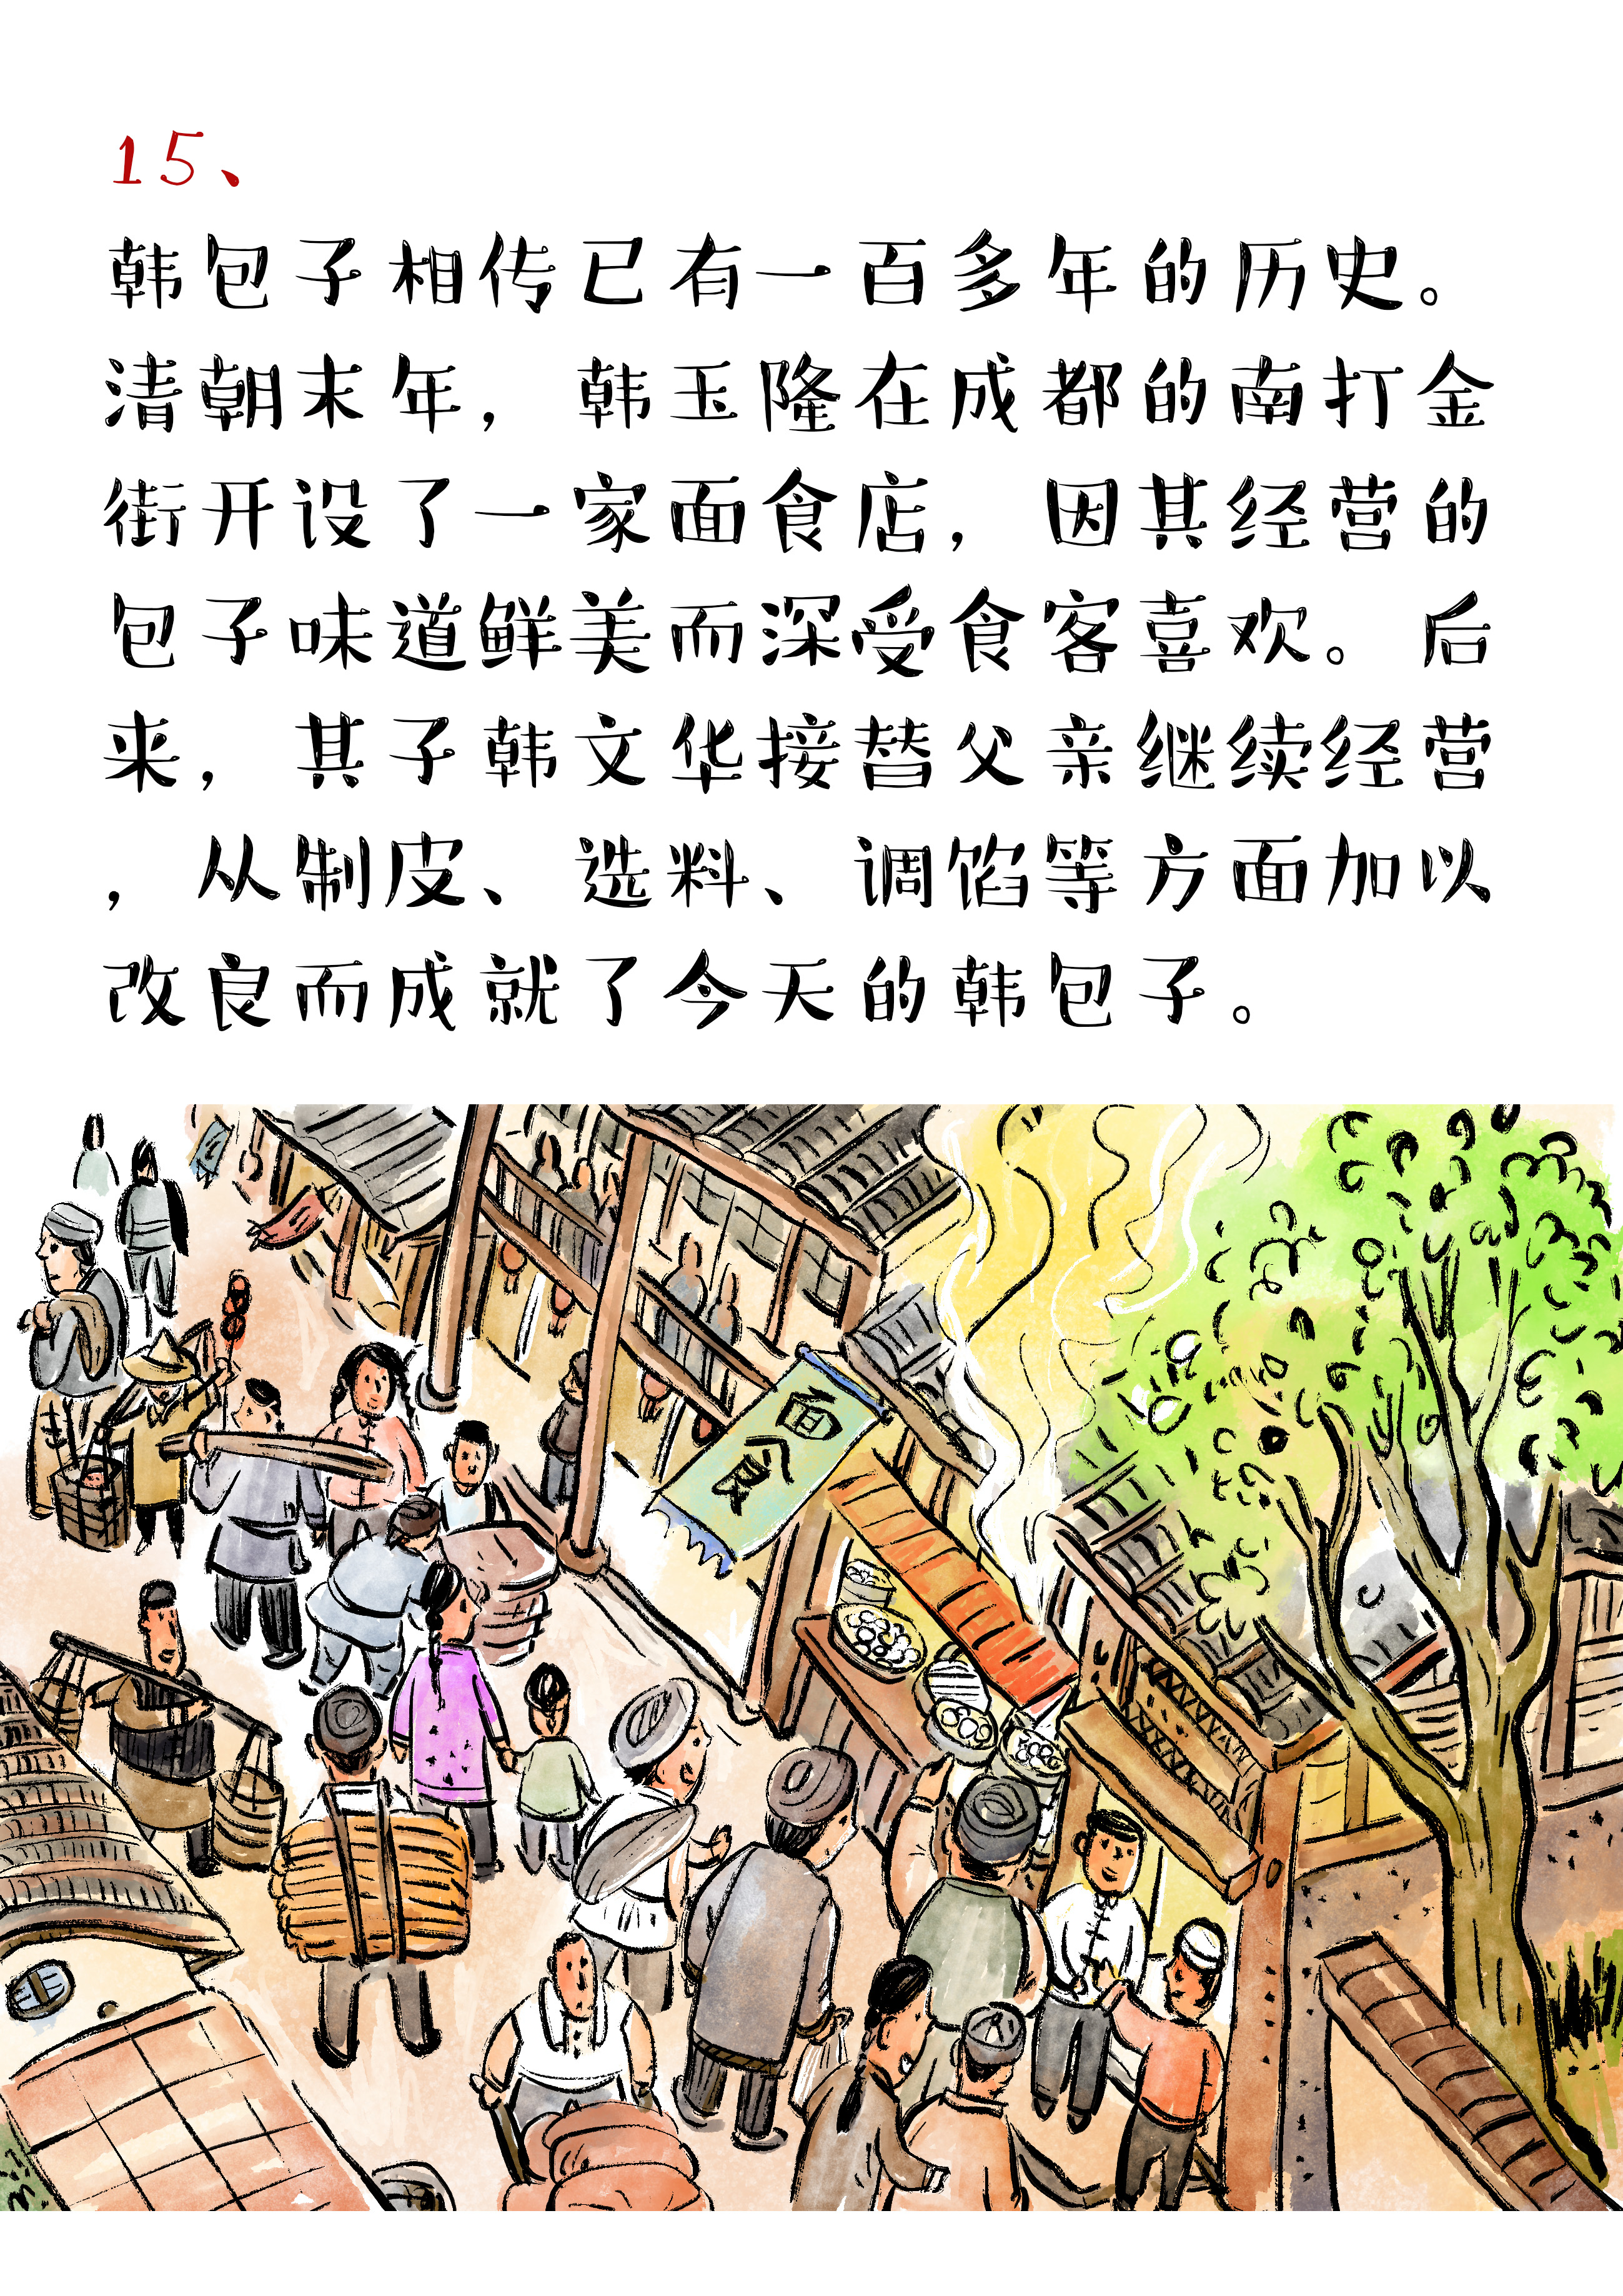 15、
韩包子相传已有一百多年的历史。
清朝末年，韩玉隆在成都的南打金
街开设了一家面食店，因其经营的
包子味道鲜美而深受食客喜欢。后
来，其子韩文华接替父亲继续经营
，从制皮、选料、调馅等方面加以
改良而成就了今天的韩包子。
面食